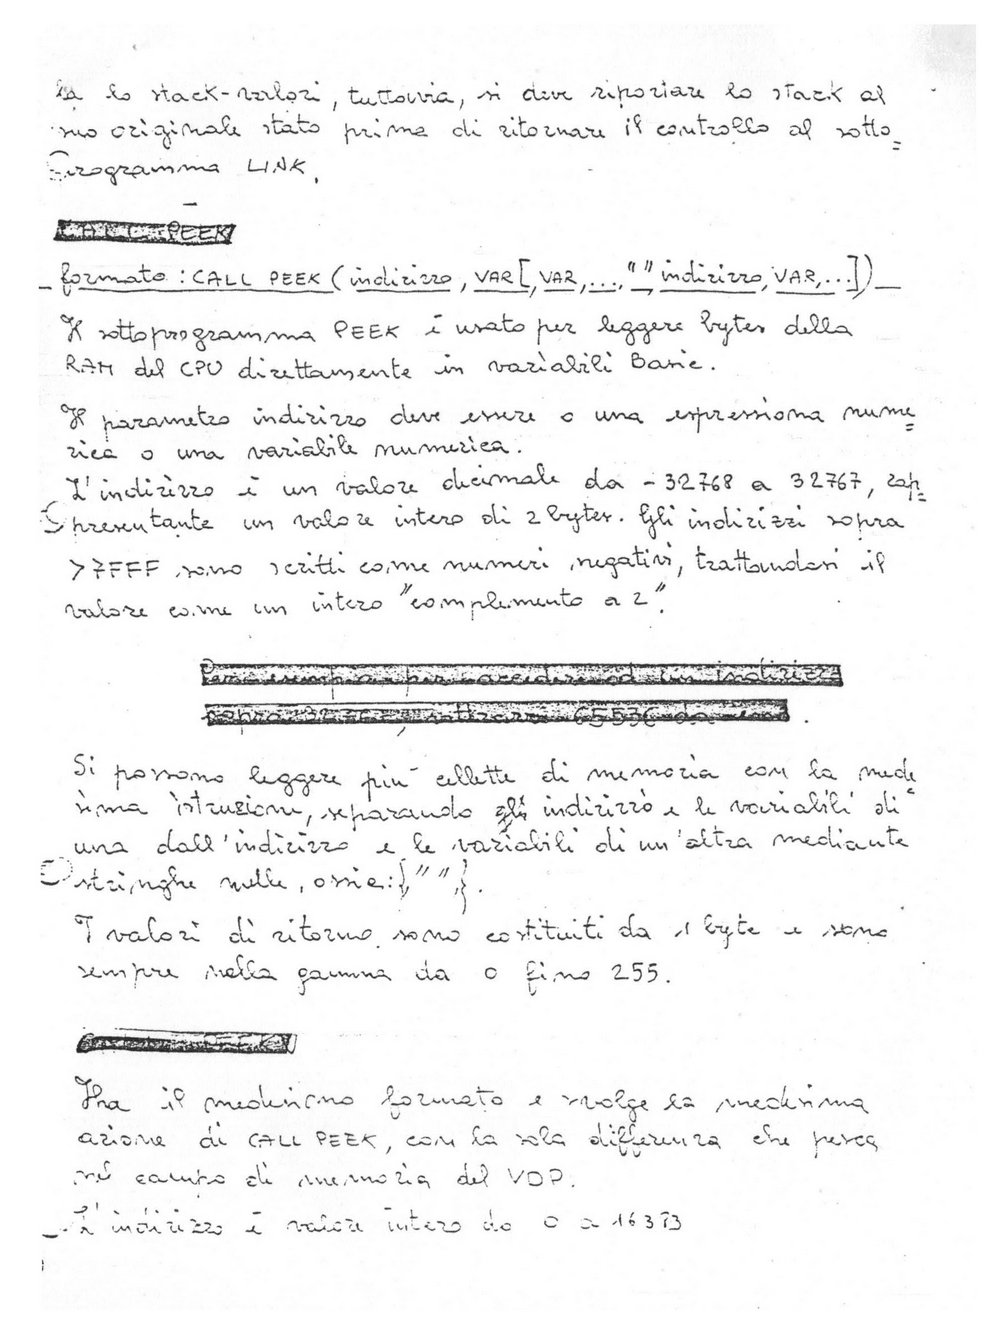 lo stack-valori, tuttavia, si deve riportare lo stack al
suo originale stato prima di ritornare il controllo al sotto=
programma LINK.
CALL PEEK
formato : CALL PEEK (indirizzo, VAR[,VAR,...,"",indirizzo,VAR,...])
Il sottoprogramma PEEK è usato per leggere bytes della
RAM del CPU direttamente in variàbili Basic.
Il parametro indirizzo deve essere o una espressiona nume=
rica o una variabile numerica.
L'indirizzo è un valore decimale da -32768 a 32767, rap=
presentante un valore intero di 2 bytes. Gli indirizzi sopra
>7FFF sono scritti come numeri negativi, trattandosi il
valore come un intero "complemento a 2".
Per esempio, per accedere ad un indirizzo
sopra 32767, sottrarre 65536 da
Si possono leggere più cellette di memoria con la mede=
sima istruzione, separando gli indirizzo e le variabili di
una dall'indirizzo e le variabili di un'altra mediante
stringhe nulle, ossia:{,"",}.
I valori di ritorno sono costituiti da 1 byte e sono
sempre nella gamma da 0 fino 255.
Ha il medesimo formato e svolge la medesima
azione di CALL PEEK, con la sola differenza che pesca
nel campo di memoria del VDP.
L'indirizzo è valore intero da 0 a 16383